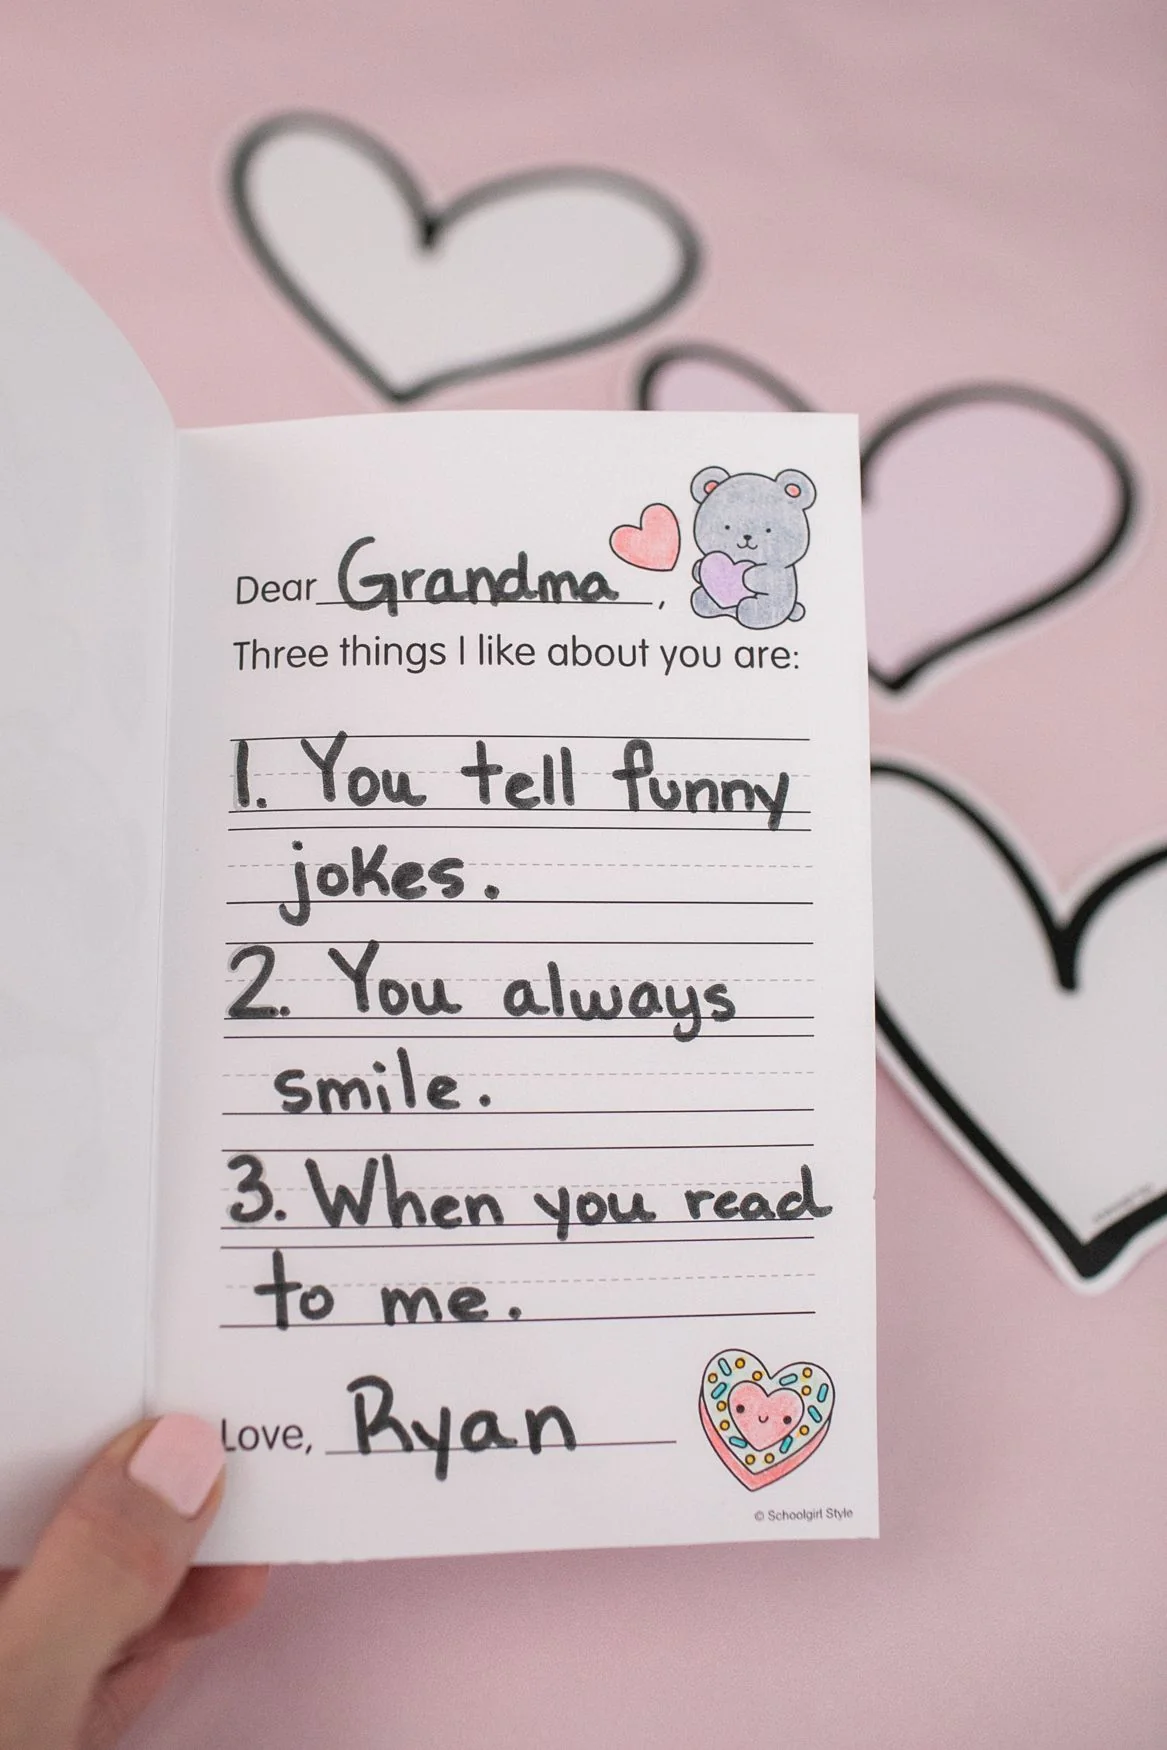 Dear Grandma,
Three things I like about you are:
1. You tell funny
jokes.
2. You always
smile.
3. When you read
to me.
Love, Ryan
© Schoolgirl Style